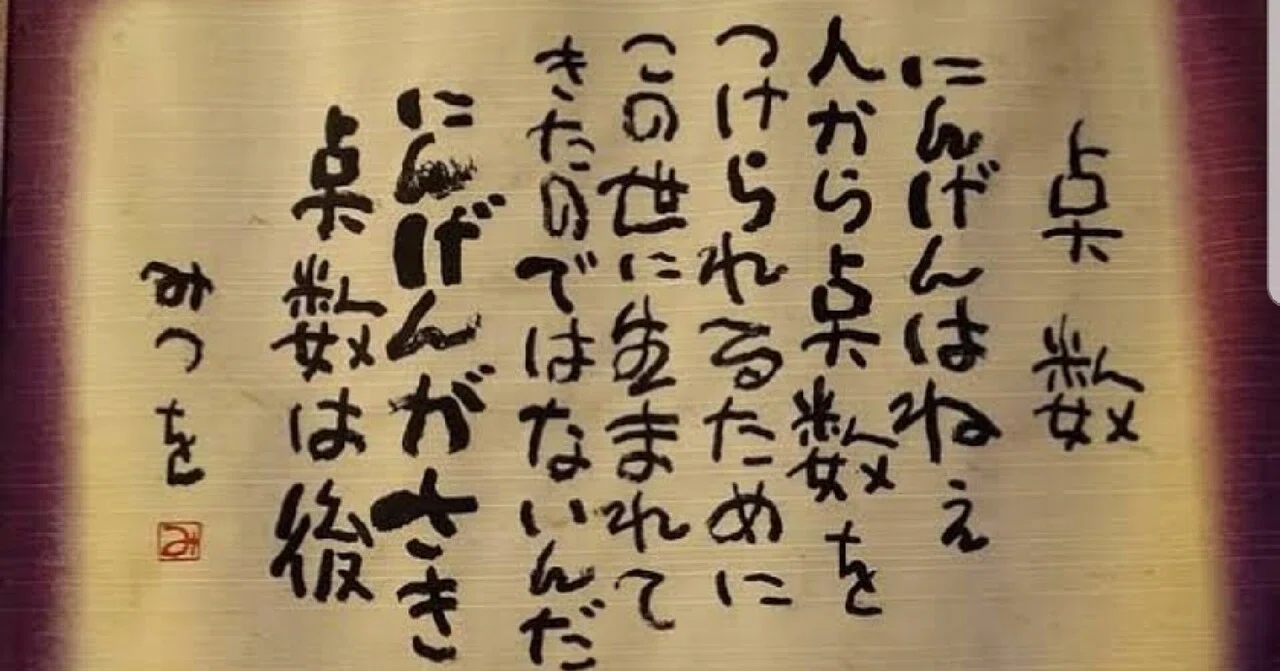 点数
にんげんはねぇ
人から点数を
つけられるために
この世に生まれて
きたのではないんだ
にんげんがさき
点数は後
みつを
み